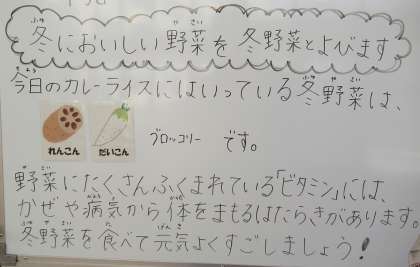 冬においしい野菜を冬野菜とよびます
今日のカレーライスにはいっている冬野菜は、
れんこん だいこん ブロッコリー です。
野菜にたくさんふくまれている「ビタミン」には、
かぜや病気から体をまもるはたらきがあります。
冬野菜を食べて元気よくすごしましょう!